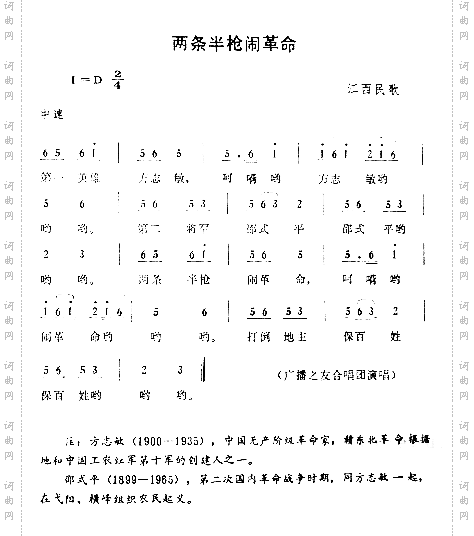 两条半枪闹革命
1=D 2/4
江西民歌
中速
65 61 | 56 5 | 5.6 1 | 161 216 |
第一 英雄 方志 敏, 呵 嗬 哟 方志 敏哟
5 6 | 56 53 | 563 2 | 56 53 |
哟 哟。 第二 将军 邵式 平 邵式 平哟
2 3 | 65 61 | 56 5 | 5.6 1 |
哟 哟。 两条 半枪 闹革 命, 呵嗬 哟
161 216 | 5 6 | 56 53 | 563 2 |
闹革 命哟 哟 哟。 打倒 地主 保百 姓
56 53 | 2 3 ‖
保百 姓哟 哟 哟。
(广播之友合唱团演唱)
注: 方志敏(1900—1935), 中国无产阶级革命家, 赣东北革命根据
地和中国工农红军第十军的创建人之一。
邵式平(1899—1965), 第二次国内革命战争时期, 同方志敏一起,
在弋阳、横峰组织农民起义。
词曲网